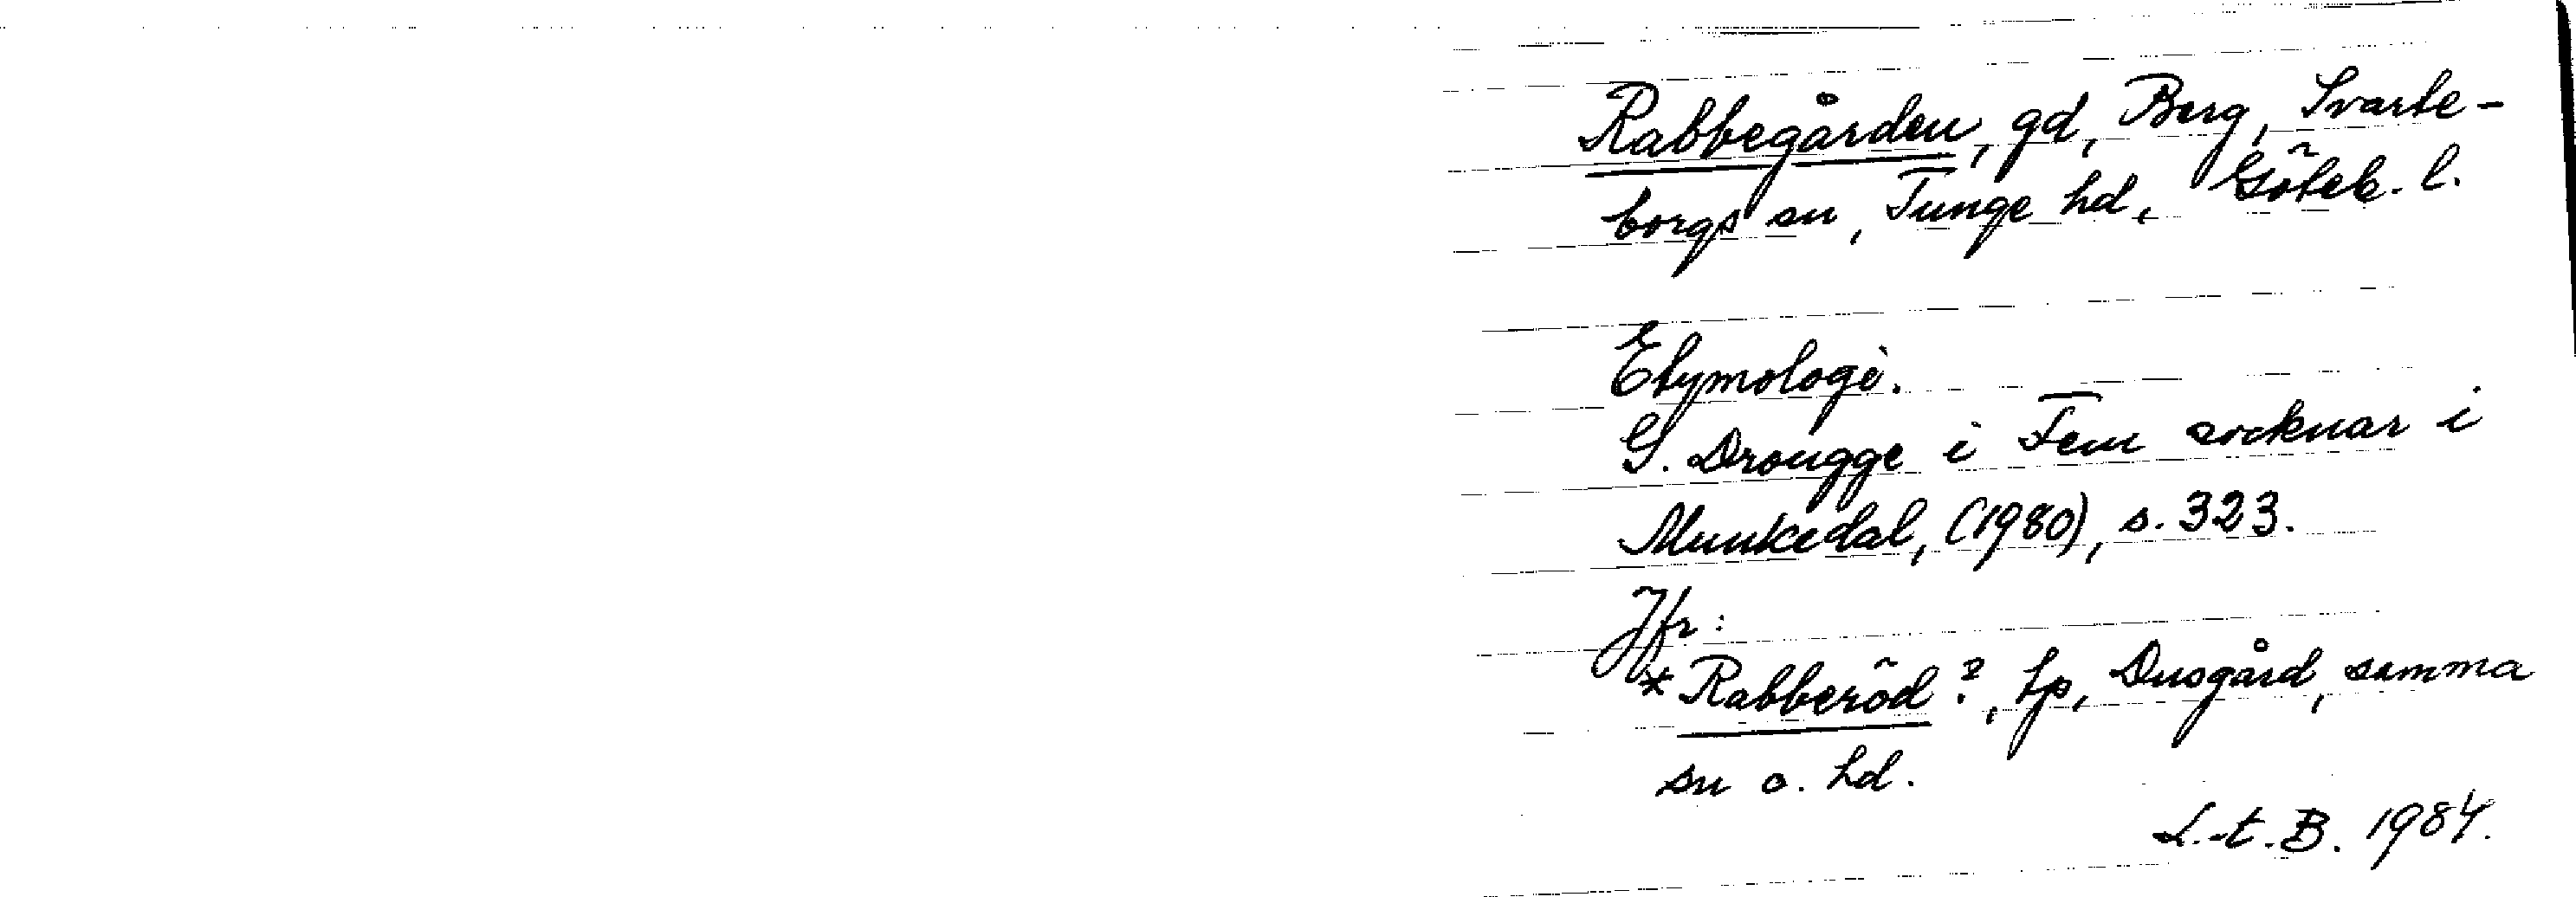 Rabbegården, gd, Berg, Svarte-
borgs sn, Tunge hd, Göteb. l.
Etymologi.
G. Drougge i Fem socknar i
Munkedal, (1980), s. 323.
Jfr:
*Rabberöd?, tp, Dusgård, samma
sn o. hd.
L.-t. B. 1984.